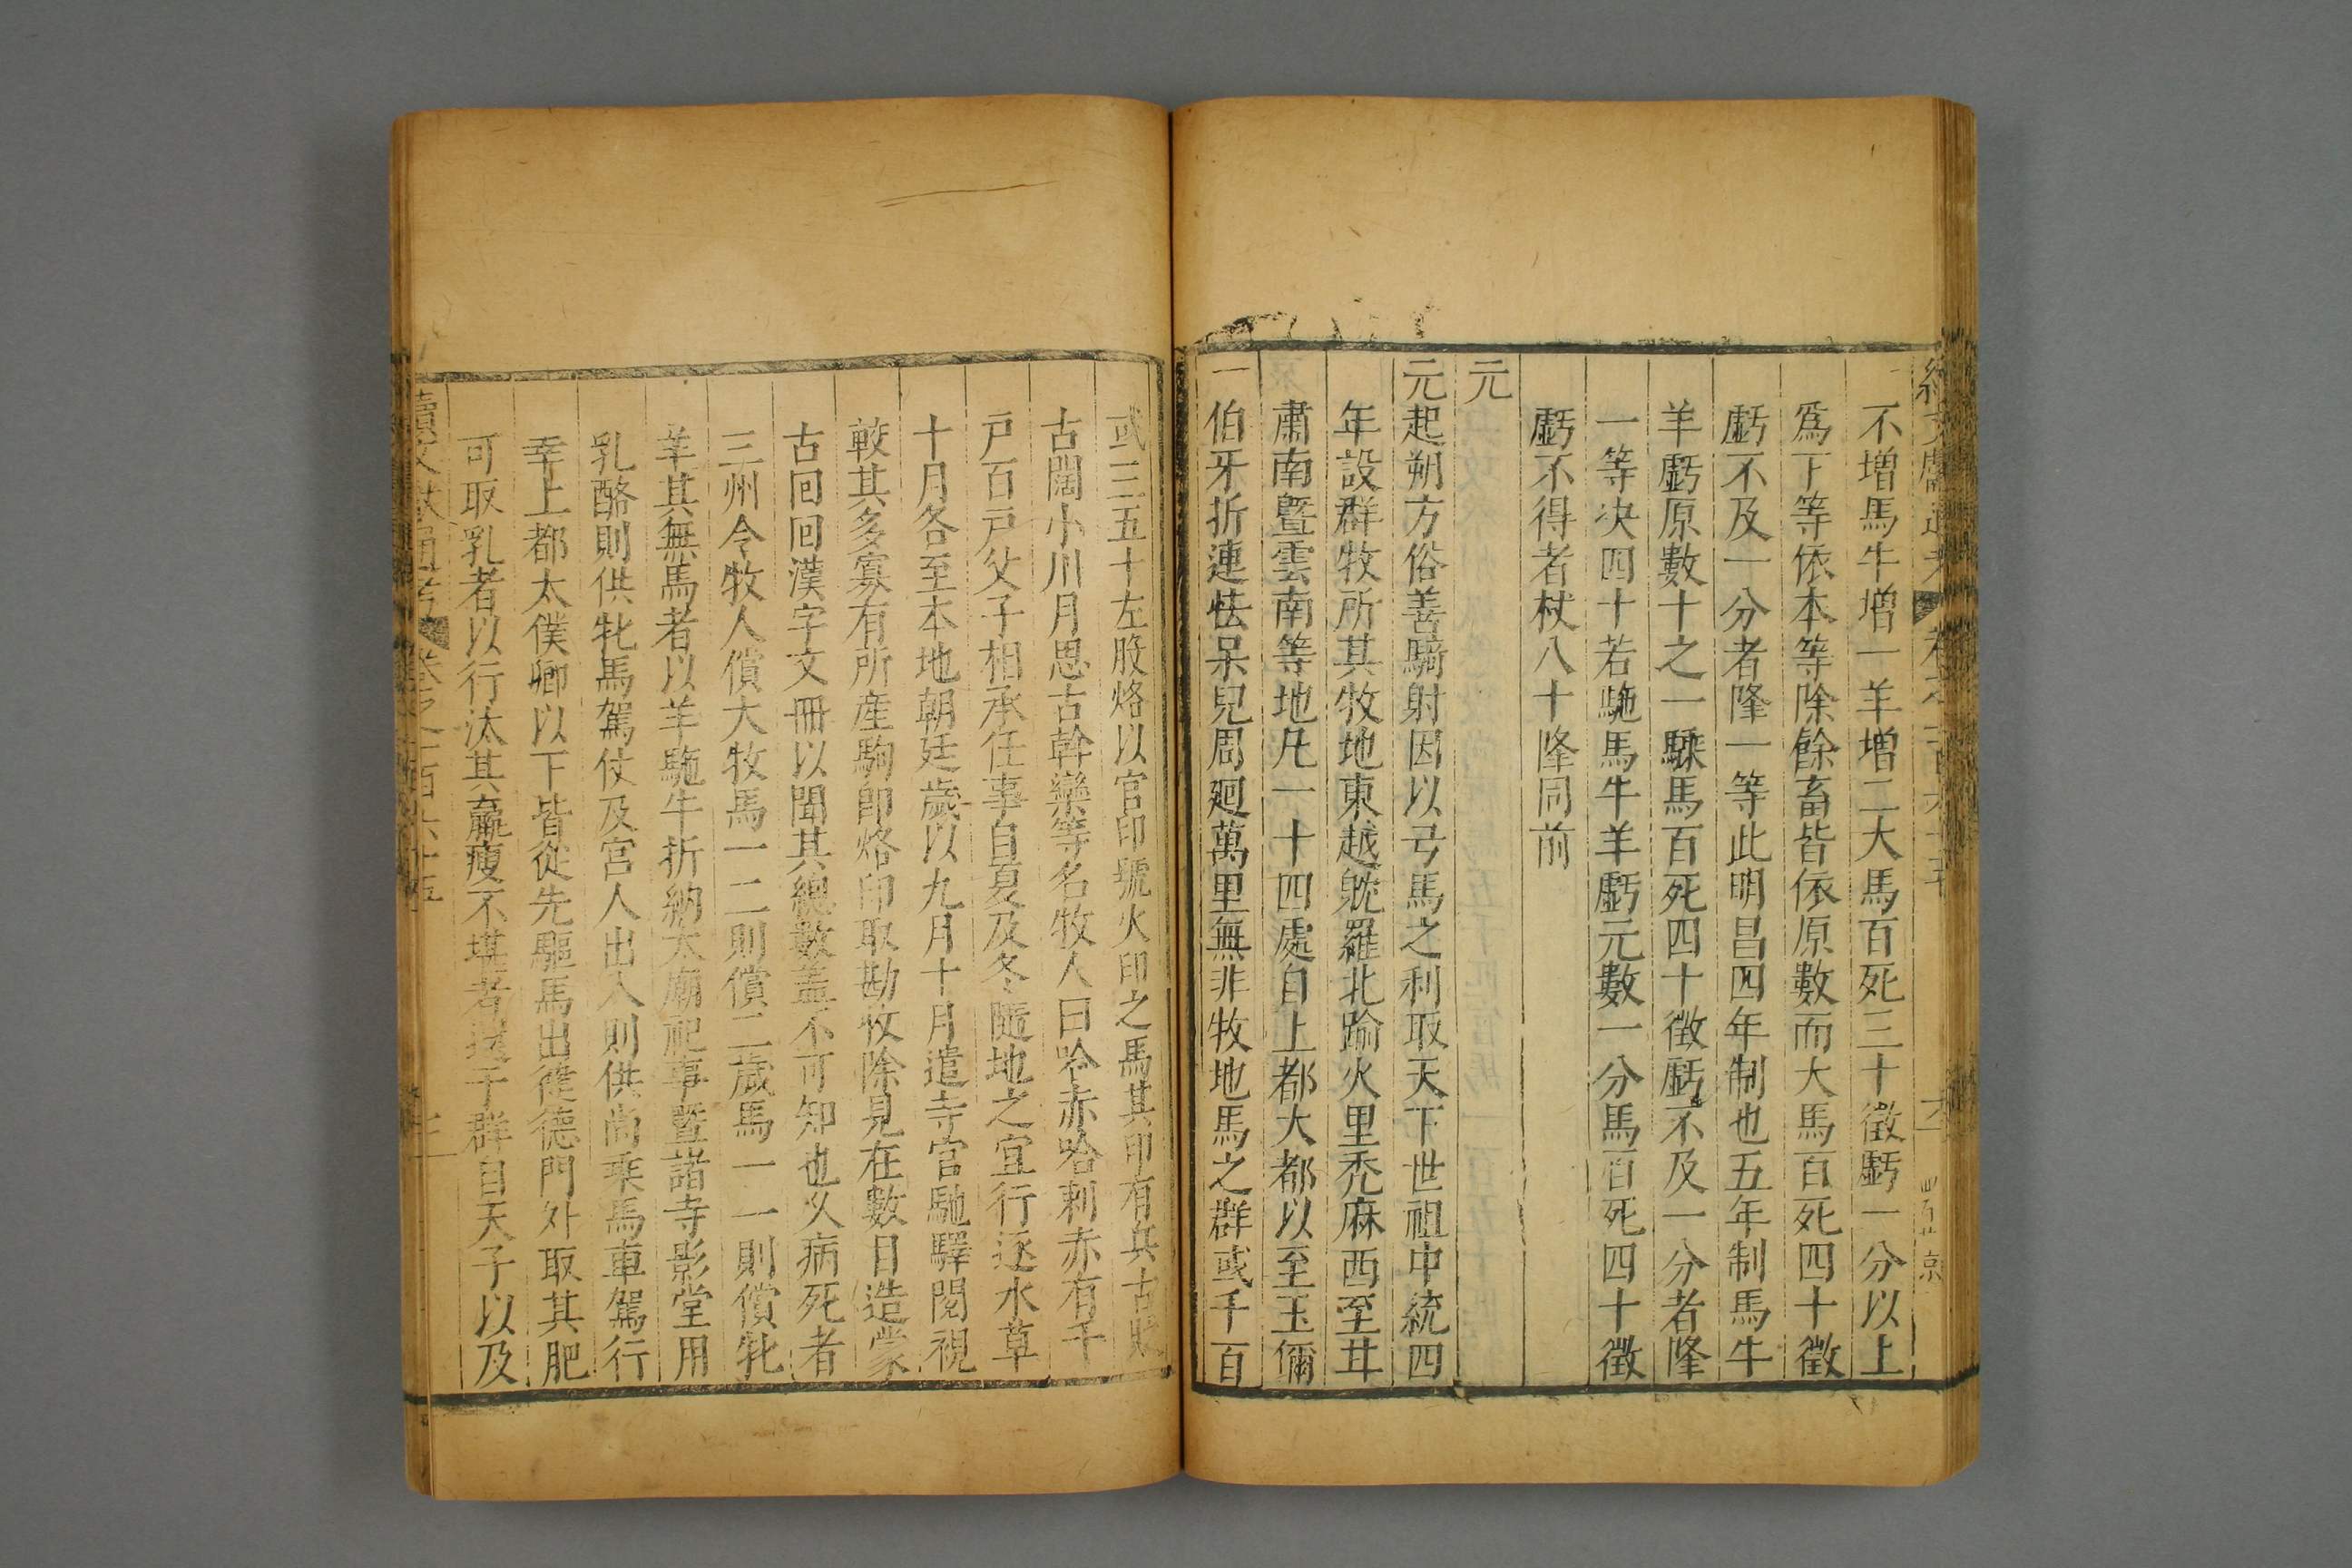 不增馬牛增一羊增二大馬百死三十徵虧一分以上
爲下等依本等除餘畜皆依原數而大馬百死四十徵
虧不及一分者隆一等此明昌四年制也五年制馬牛
羊虧原數十之一騍馬百死四十徵虧不及一分者隆
一等决四十若駞馬牛羊虧元數一分馬百死四十徵
虧不得者杖八十隆同前
元
元起朔方俗善騎射因以弓馬之利取天下世祖中統四
年設群牧所其牧地東越躭羅北踰火里禿麻西至甘
肅南暨雲南等地凡一十四處自上都大都以至玉你
伯牙折連怯呆兒周廻萬里無非牧地馬之群或千百
或三五十左股烙以官印號火印之馬其印有兵古
古闊卜川月思古斡欒等名牧人曰哈赤哈剌赤有千
戸百戸父子相承任事自夏及冬隨地之宜行逐水草
十月各至本地朝廷歲以九月十月遣寺官馳驛閱視
較其多寡有所產駒卽烙印取勘收除見在數目造蒙
古回回漢字文冊以聞其總數蓋不可知也又病死者
三州令牧人償大牝馬一二則償二歲馬一一則償牝
羊其無馬者以羊駞牛折納太廟祀事暨諸寺影堂用
乳酪則供牝馬駕仗及宮人出入則供尚乘馬車駕行
幸上都太僕卿以下皆從先驅馬出健德門外取其肥
可取乳者以行汰其羸瘦不堪者還于群自天子以及
續文獻通考 卷之一百六十五